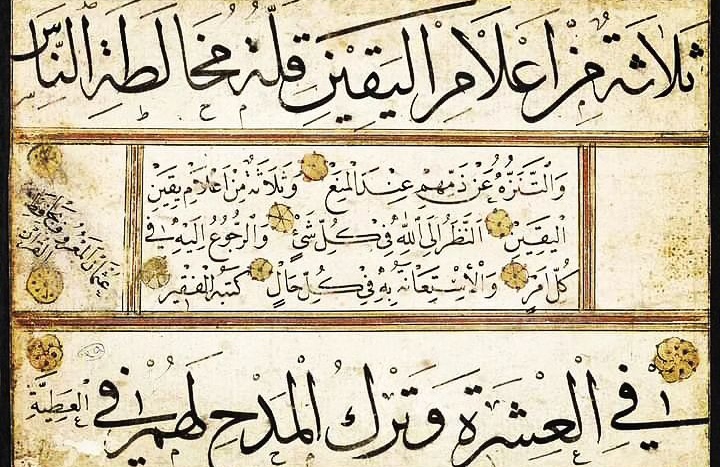 ثلاثة من اعلام اليقين قلة مخالطة الناس
والتنزه عن ذمهم عند المنع وثلاثة من اعلام يقين
اليقين النظر الى الله في كل شئ والرجوع اليه في
كل امر والاستعانة به في كل حال كتبه الفقير
عثمان المعروف بحافظ
القرآن
في العشرة وترك المدح لهم في
العطية